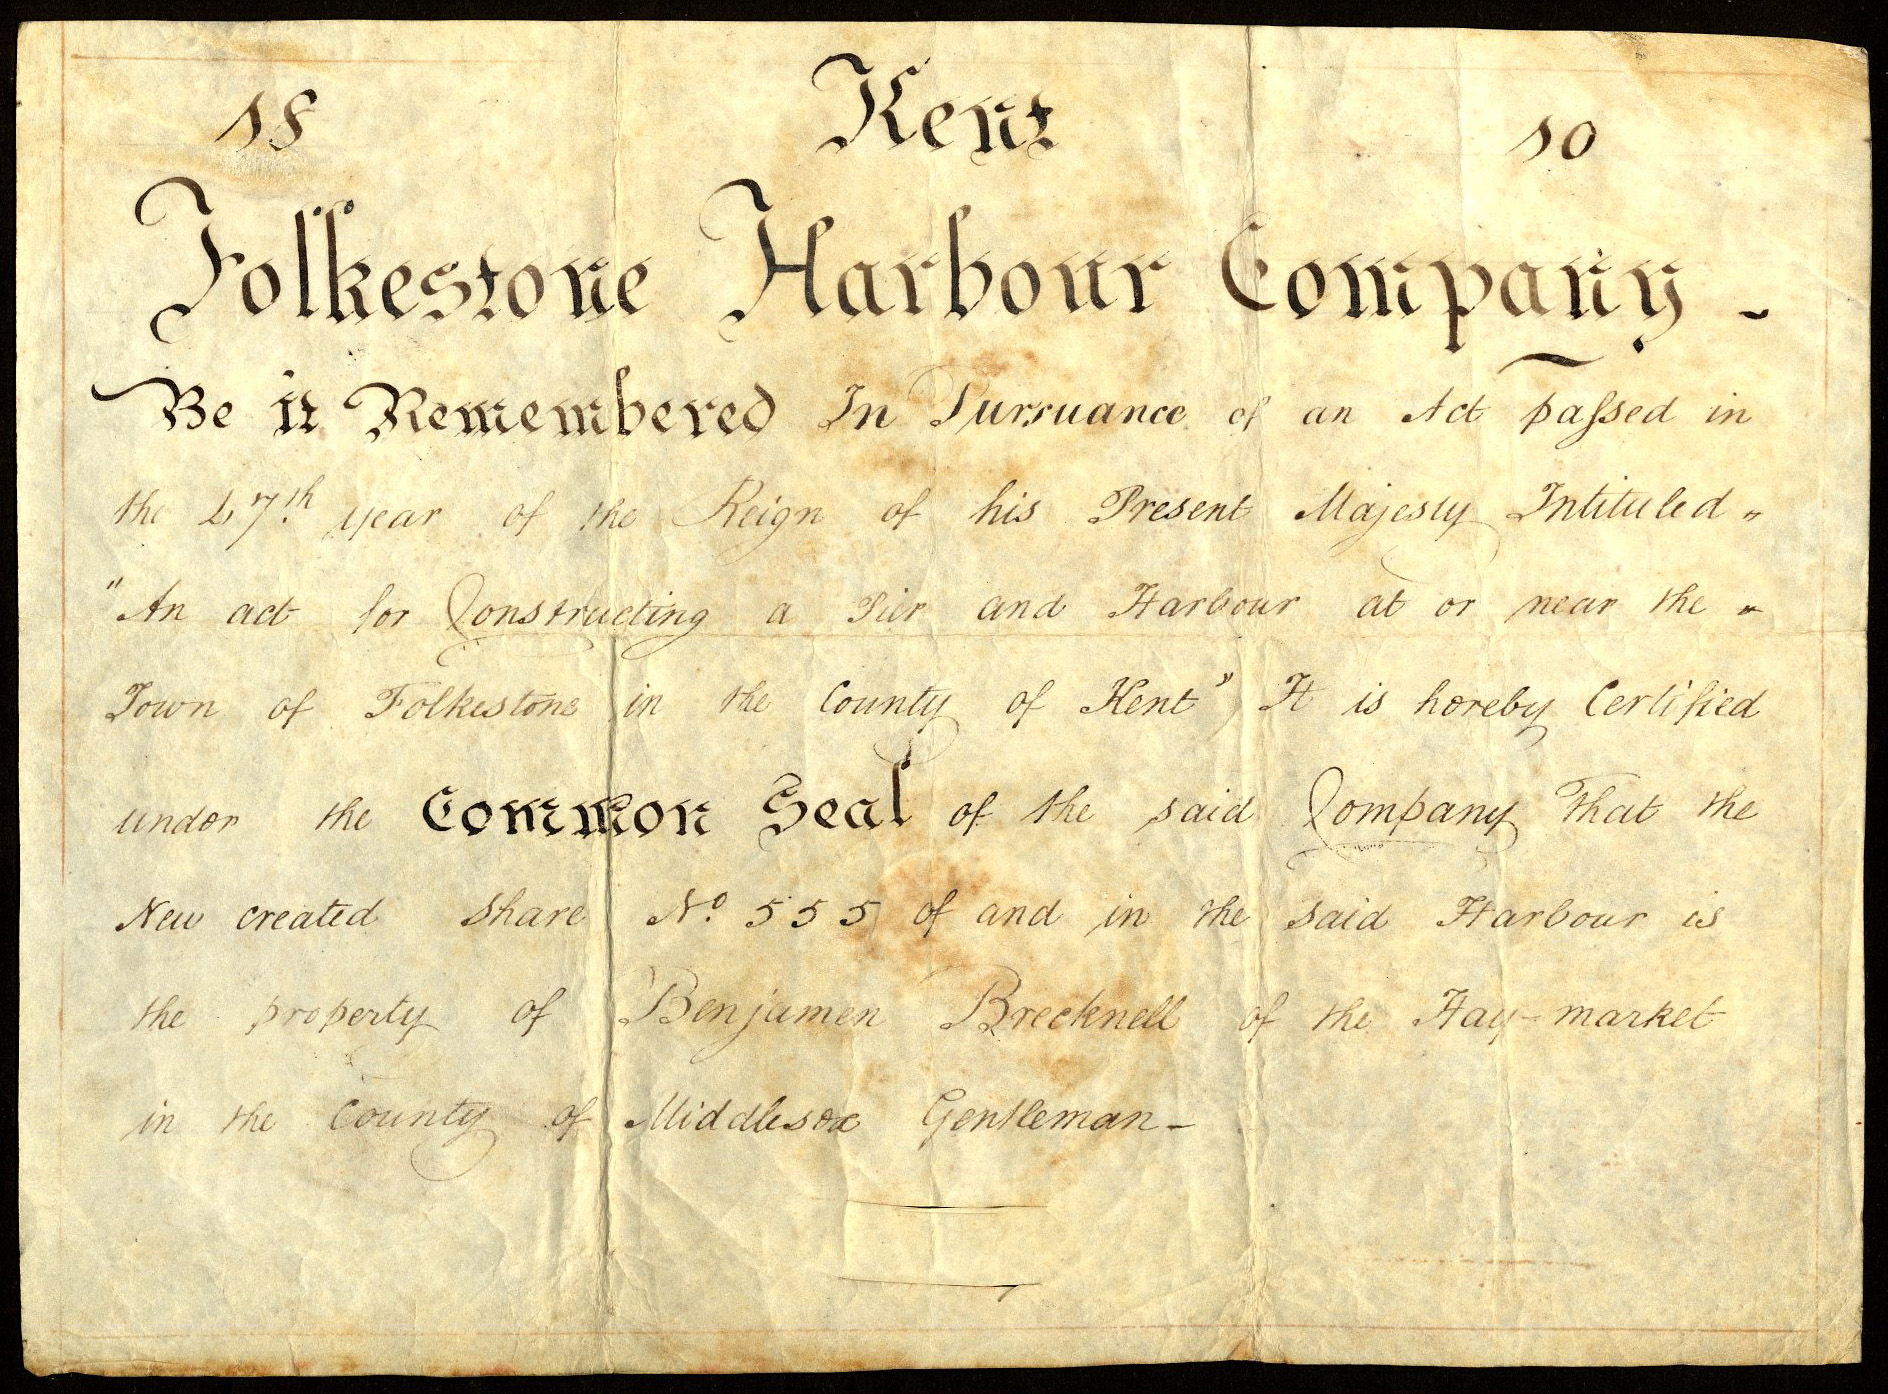 18 Kent 10
Folkestone Harbour Company -
Be it Remembered In Pursuance of an Act passed in
the 47th year of the Reign of his Present Majesty Intituled "
"An act for Constructing a Pier and Harbour at or near the "
Town of Folkestone in the County of Kent" It is hereby Certified
under the Common Seal of the said Company That the
New created Share No. 555 of and in the said Harbour is
the property of Benjamen Brecknell of the Hay-market
in the County of Middlesex Gentleman -